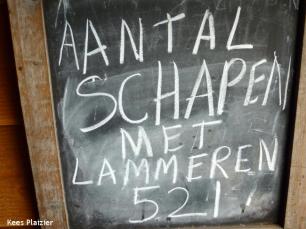 AANTAL
SCHAPEN
MET
LAMMEREN
521
Kees Platzier